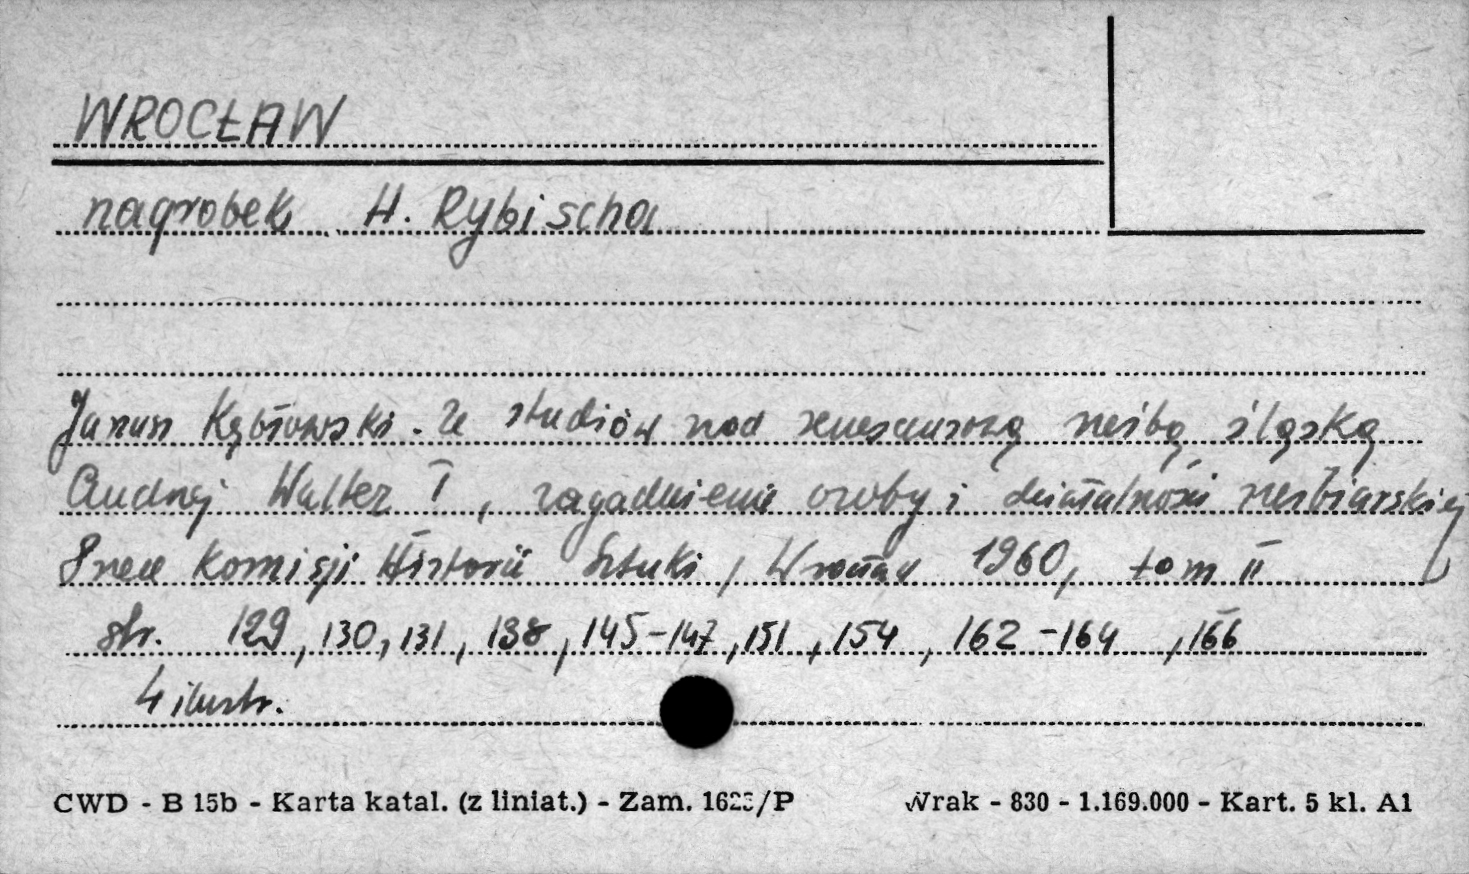 WROCŁAW
nagrobek H. Rybischa
Janusz Kębłowski. Ze studiów nad renesansową rzeźbą śląską
Andrzej Walter I, zagadnienie osoby i działalności rzeźbiarskiej
Prace Komisji Historii Sztuki, Wrocław 1960, tom II
str. 129, 130, 131, 138, 145-147, 151, 154, 162-164, 166
4 ilustr.
CWD - B 15b - Karta katal. (z liniat.) - Zam. /P Wrak - 830 - 1.169.000 - Kart. 5 kl. A1